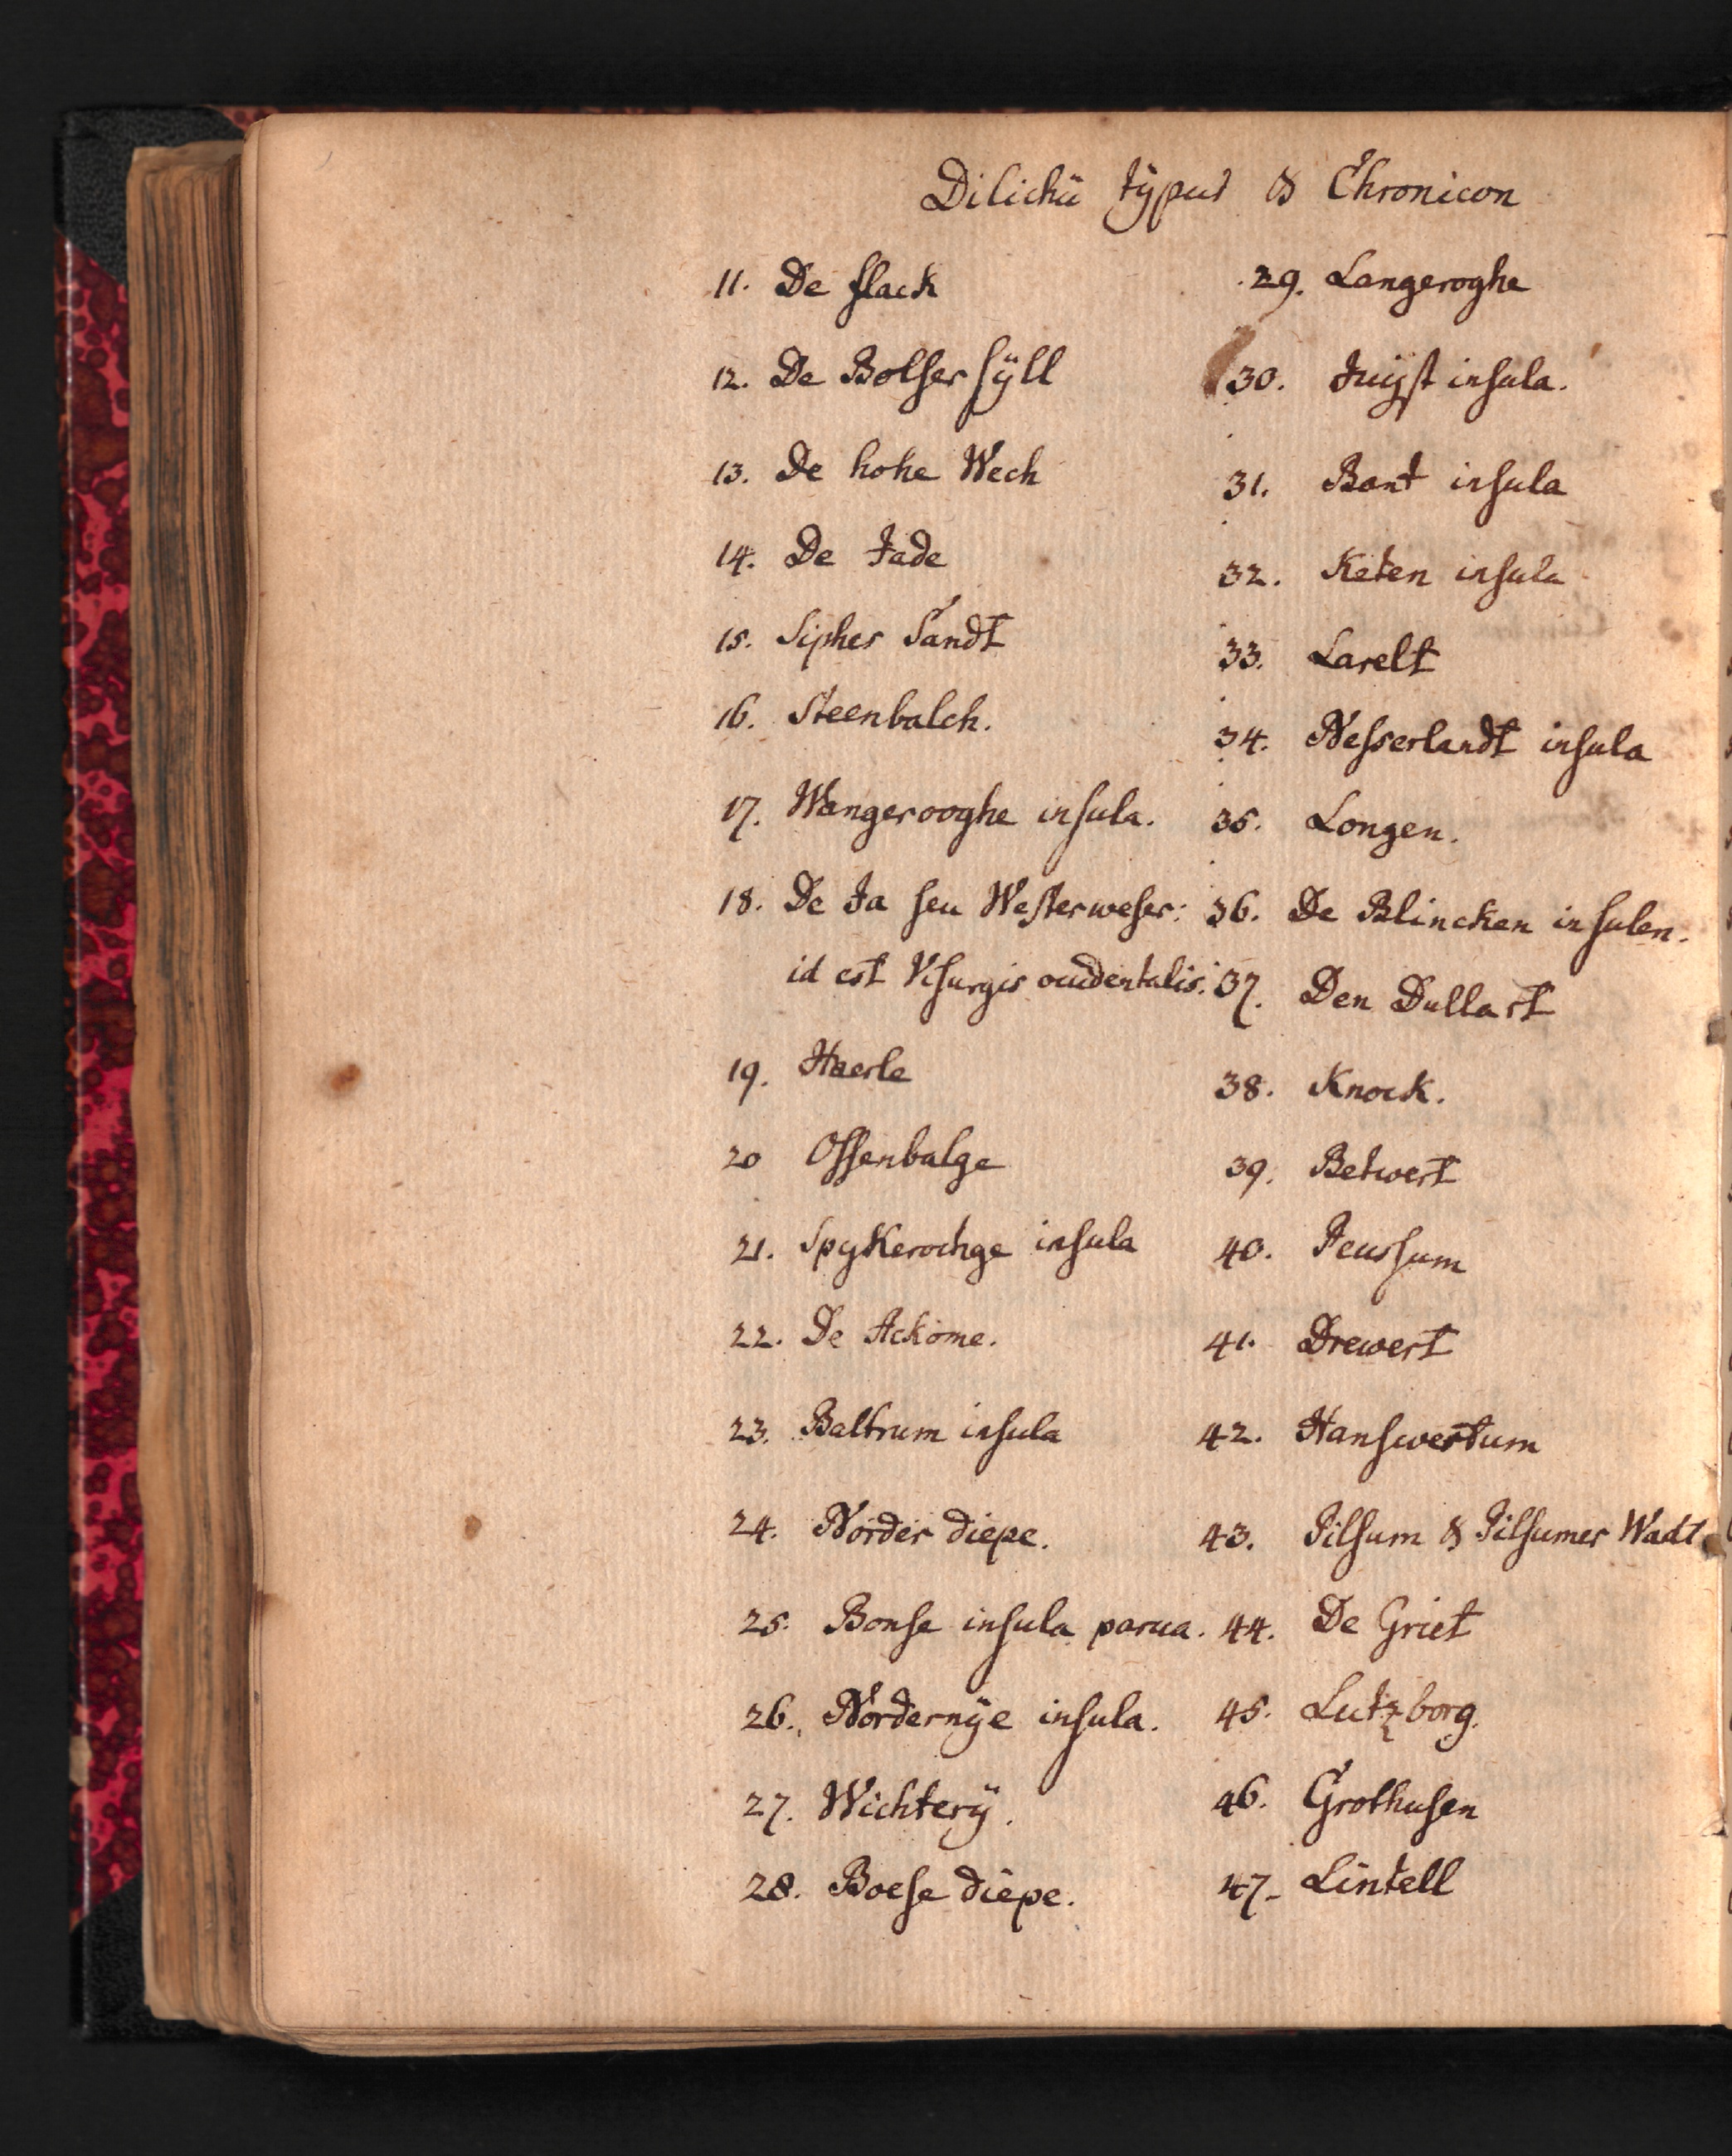 Dilichii typus & Chronicon
11. De flack
12. De Bolser sÿll
13. De hohe Wech
14. De Jade
15. Sipher Sandt
16. Steenbalch.
17. Wangerooghe insula.
18. De Ja seu Westerweser:
id est Visurgis occidentalis.
19. Haerle
20 Ossenbalge
21. Spykerochge insula
22. De Ackome.
23. Baltrum insula
24. Norder diepe.
25. Bonse insula parua.
26. Nordernÿe insula.
27. Wichterÿ.
28. Boese diepe.
29. Langeroghe
30. Juÿst insula.
31. Bant insula
32. Keten insula
33. Larelt
34. Nesserlandt insula
35. Longen.
36. De Blincken insulen.
37. Den Dullart
38. Knock.
39. Betwert
40. Peussum
41. Drewert
42. Hanswertum
43. Pilsum & Pilsumer Wadt
44. De Griet
45. Lutzborg.
46. Grothusen
47. Lintell